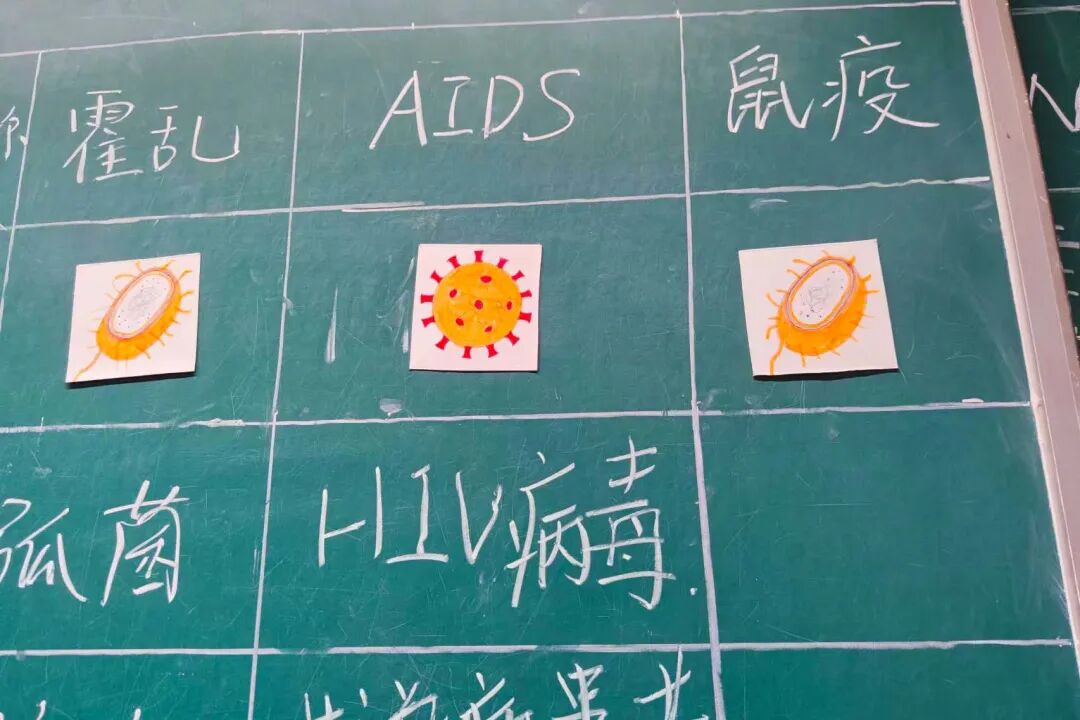 霍乱 AIDS 鼠疫
弧菌 HIV病毒.